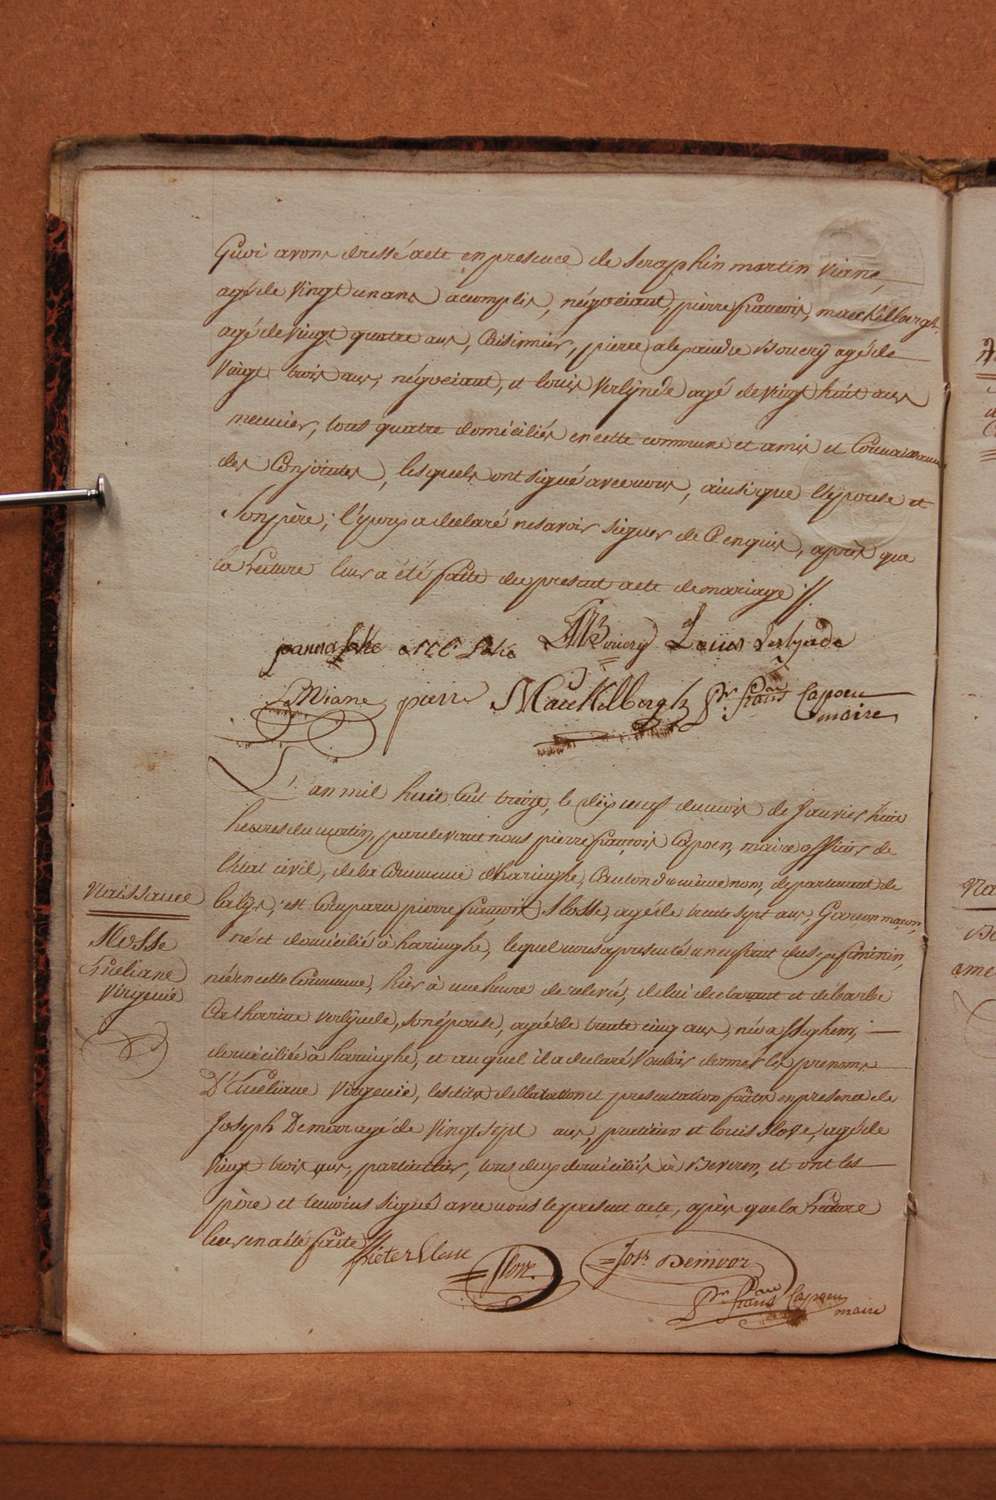 Quoi avons dressé acte en presence de Seraphin martin Viane,
agé de Vingt un ans acomplis, négociant, pierre francois, maeckelbergh
agé de Vingt quatre ans, Cuisinier, pierre alexandre Bouery agé de
Vingt trois ans, négociant, et louis Verlijnde agé de Vingt huit ans
meunier, tous quatre domiciliés en cette commune et amis et
des Conjointes, lesquels ont signé avec nous, ainsi que l'épouse et
son père; l'epoux a declaré ne savoir signer de Ce enquis, après que
la Lecture leur a été faite du present acte de mariage //
Bouery Louis Verlynde
Viane pierre Maeckelbergh Pre frans Capoen
maire
L'an mil huit Cent treize, le dix neuf du mois de Janvier huit
heures du matin, pardevant nous pierre françois Capoen, maire officier de
l'état civil, de la Commune d'haringhe, Canton du même nom, departement de
la lys, est Comparu pierre francois Slosse, agé de trente sept ans, Garcon maçon
né et domicilié à haringhe, lequel nous a presenté un enfant du sexe feminin,
née en cette Commune, hier à une heure de relevée, de lui declarant et de barbe
Catharine Verlijnde, son épouse, agée de trente cinq ans, née a
domiciliée à haringhe, et auquel il a declaré Vouloir donner les prenoms
D' Virgenie, les dites declaration et presentation faites en presence de
Joseph Demoor agé de Vingt sept ans, praticien et louis Slosse, agé de
Vingt trois ans, particulier, tous deux domiciliés à Beveren, et ont les
père et temoins signé avec nous le present acte, après que la Lecture
leur en a été faite //
Pieter Slosse Slosse Jos. Demoor
Pre frans Capoen
maire
Naissance
Slosse
Virgenie